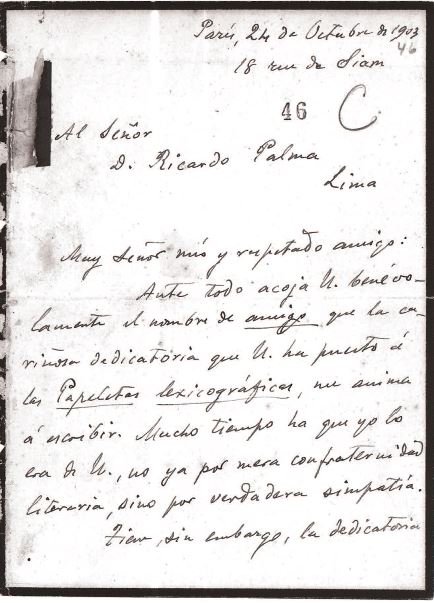 París, 24 de Octubre de 1903
46
18 rue de Siam
46 C
Al Señor
D. Ricardo Palma
Lima
Muy Señor mío y respetado amigo:
Ante todo acoja U. benévo-
lamente el nombre de amigo que la ca-
riñosa dedicatória que U. ha puesto á
las Papeletas lexicográficas, me anima
á escribir. Mucho tiempo ha que yo lo
era de U., no ya por mera confraternidad
literaria, sino por verdadera simpatía.
Tiene, sin embargo, la dedicatoria